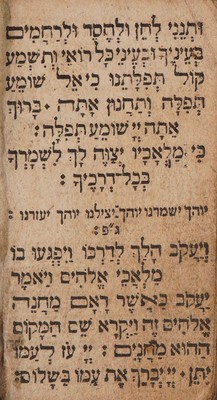 וּתְנֵנִי לְחֵן וּלְחֶסֶד וּלְרַחֲמִים
בְּעֵינֶיךָ וּבְעֵינֵי כָל רוֹאַי וְתִשְׁמַע
קוֹל תְּפִלָּתֵנוּ כִּי אֵל שׁוֹמֵעַ
תְּפִלָּה וְתַחֲנוּן אָתָּה ׃ בָּרוּךְ
אַתָּה יְיָ שׁוֹמֵעַ תְּפִלָּה׃
כִּי מַלְאָכָיו יְצַוֶּה לָךְ לִשְׁמָרְךָ
בְּכָל־דְּרָכֶיךָ ׃
יוהך ישמרנו יוהך יצילנו יוהך יעזרנו
ג״פ׃
וְיַעֲקֹב הָלַךְ לְדַרְכּוֹ וַיִּפְגְּעוּ בוֹ
מַלְאֲכֵי אֱלֹהִים וַיֹּאמֶר
יַעֲקֹב כַּאֲשֶׁר רָאָם מַחֲנֵה
אֱלֹהִים זֶה וַיִּקְרָא שֵׁם הַמָּקוֹם
הַהוּא מַחֲנָיִם ׃ יְיָ עֹז לְעַמּוֹ
יִתֵּן ׃ יְיָ יְבָרֵךְ אֶת עַמּוֹ בַשָּׁלוֹם׃